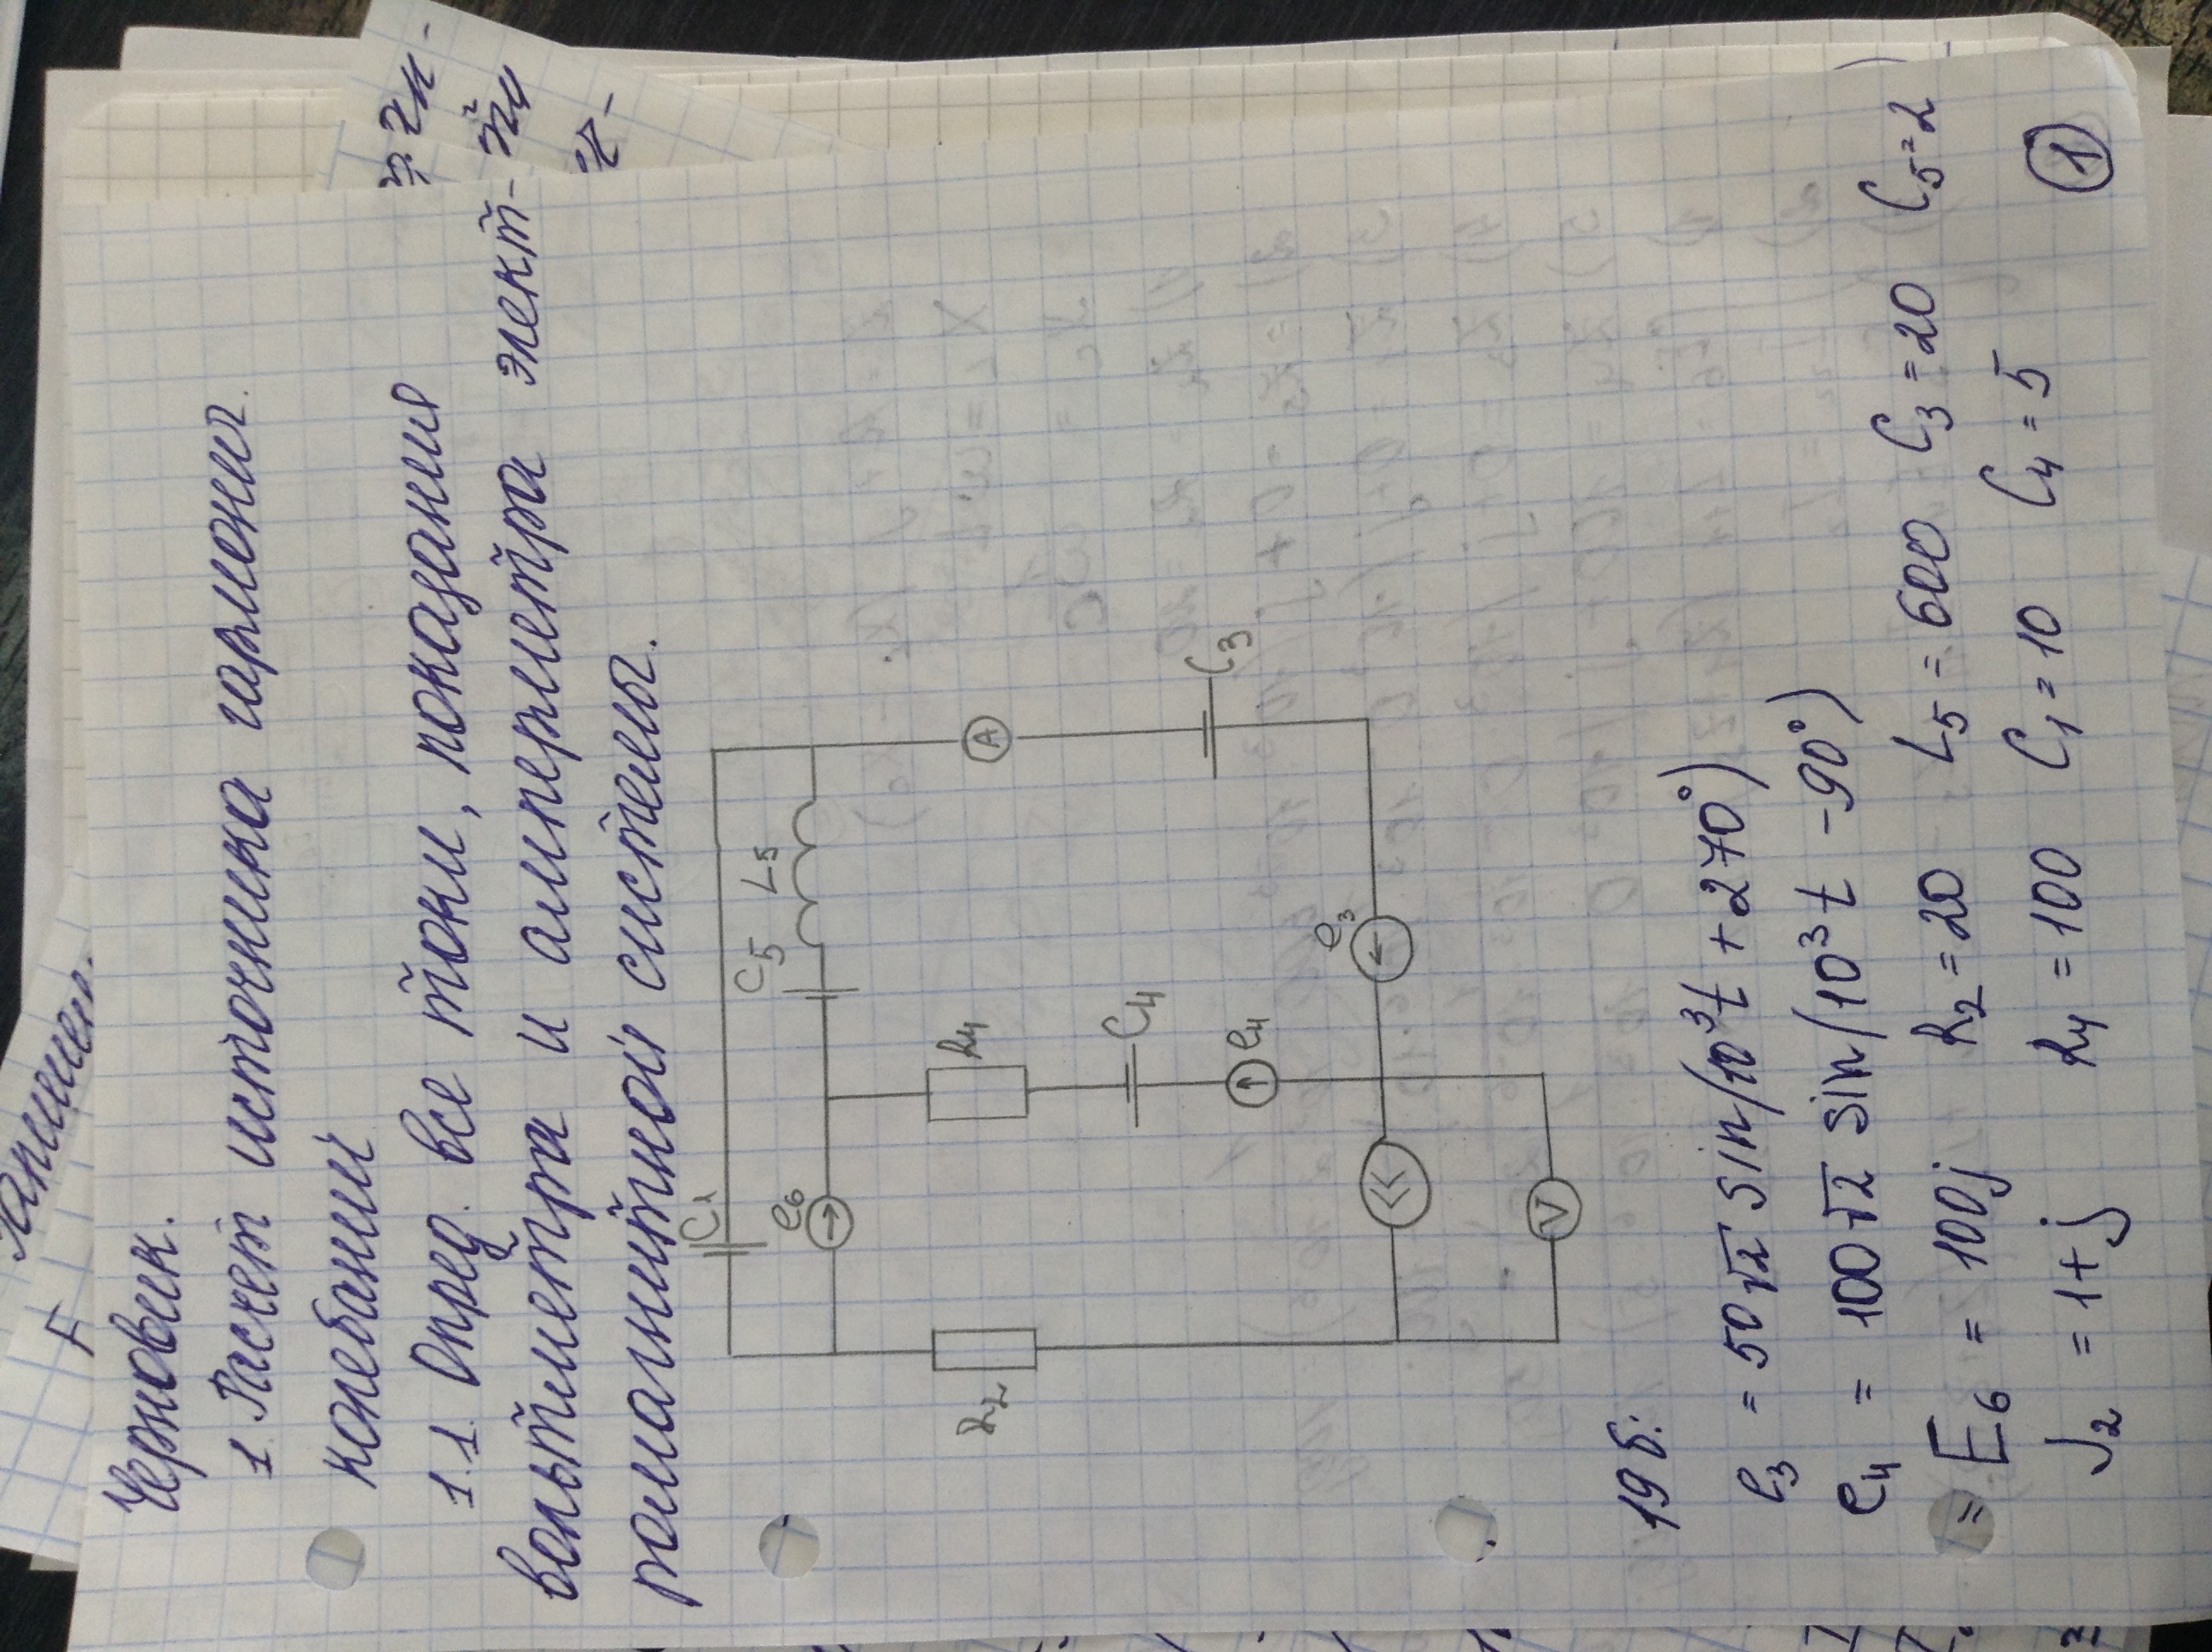 Запишем.
Черновик.
1. Расчет источника гармонич.
колебаний
1.1. Опред. все токи, показания
вольтметра и амперметра элект-
ромагнитной системы.
C1
e6
C5
L5
R2
R4
C4
e4
A
C3
e3
V
19 б:
e3 = 50√2 sin(10³t + 270°)
e4 = 100√2 sin(10³t - 90°)
= E6 = 100j R2 = 20 L5 = 600 C3 = 20 C5 = 2
J2 = 1+j R4 = 100 C1 = 10 C4 = 5
1